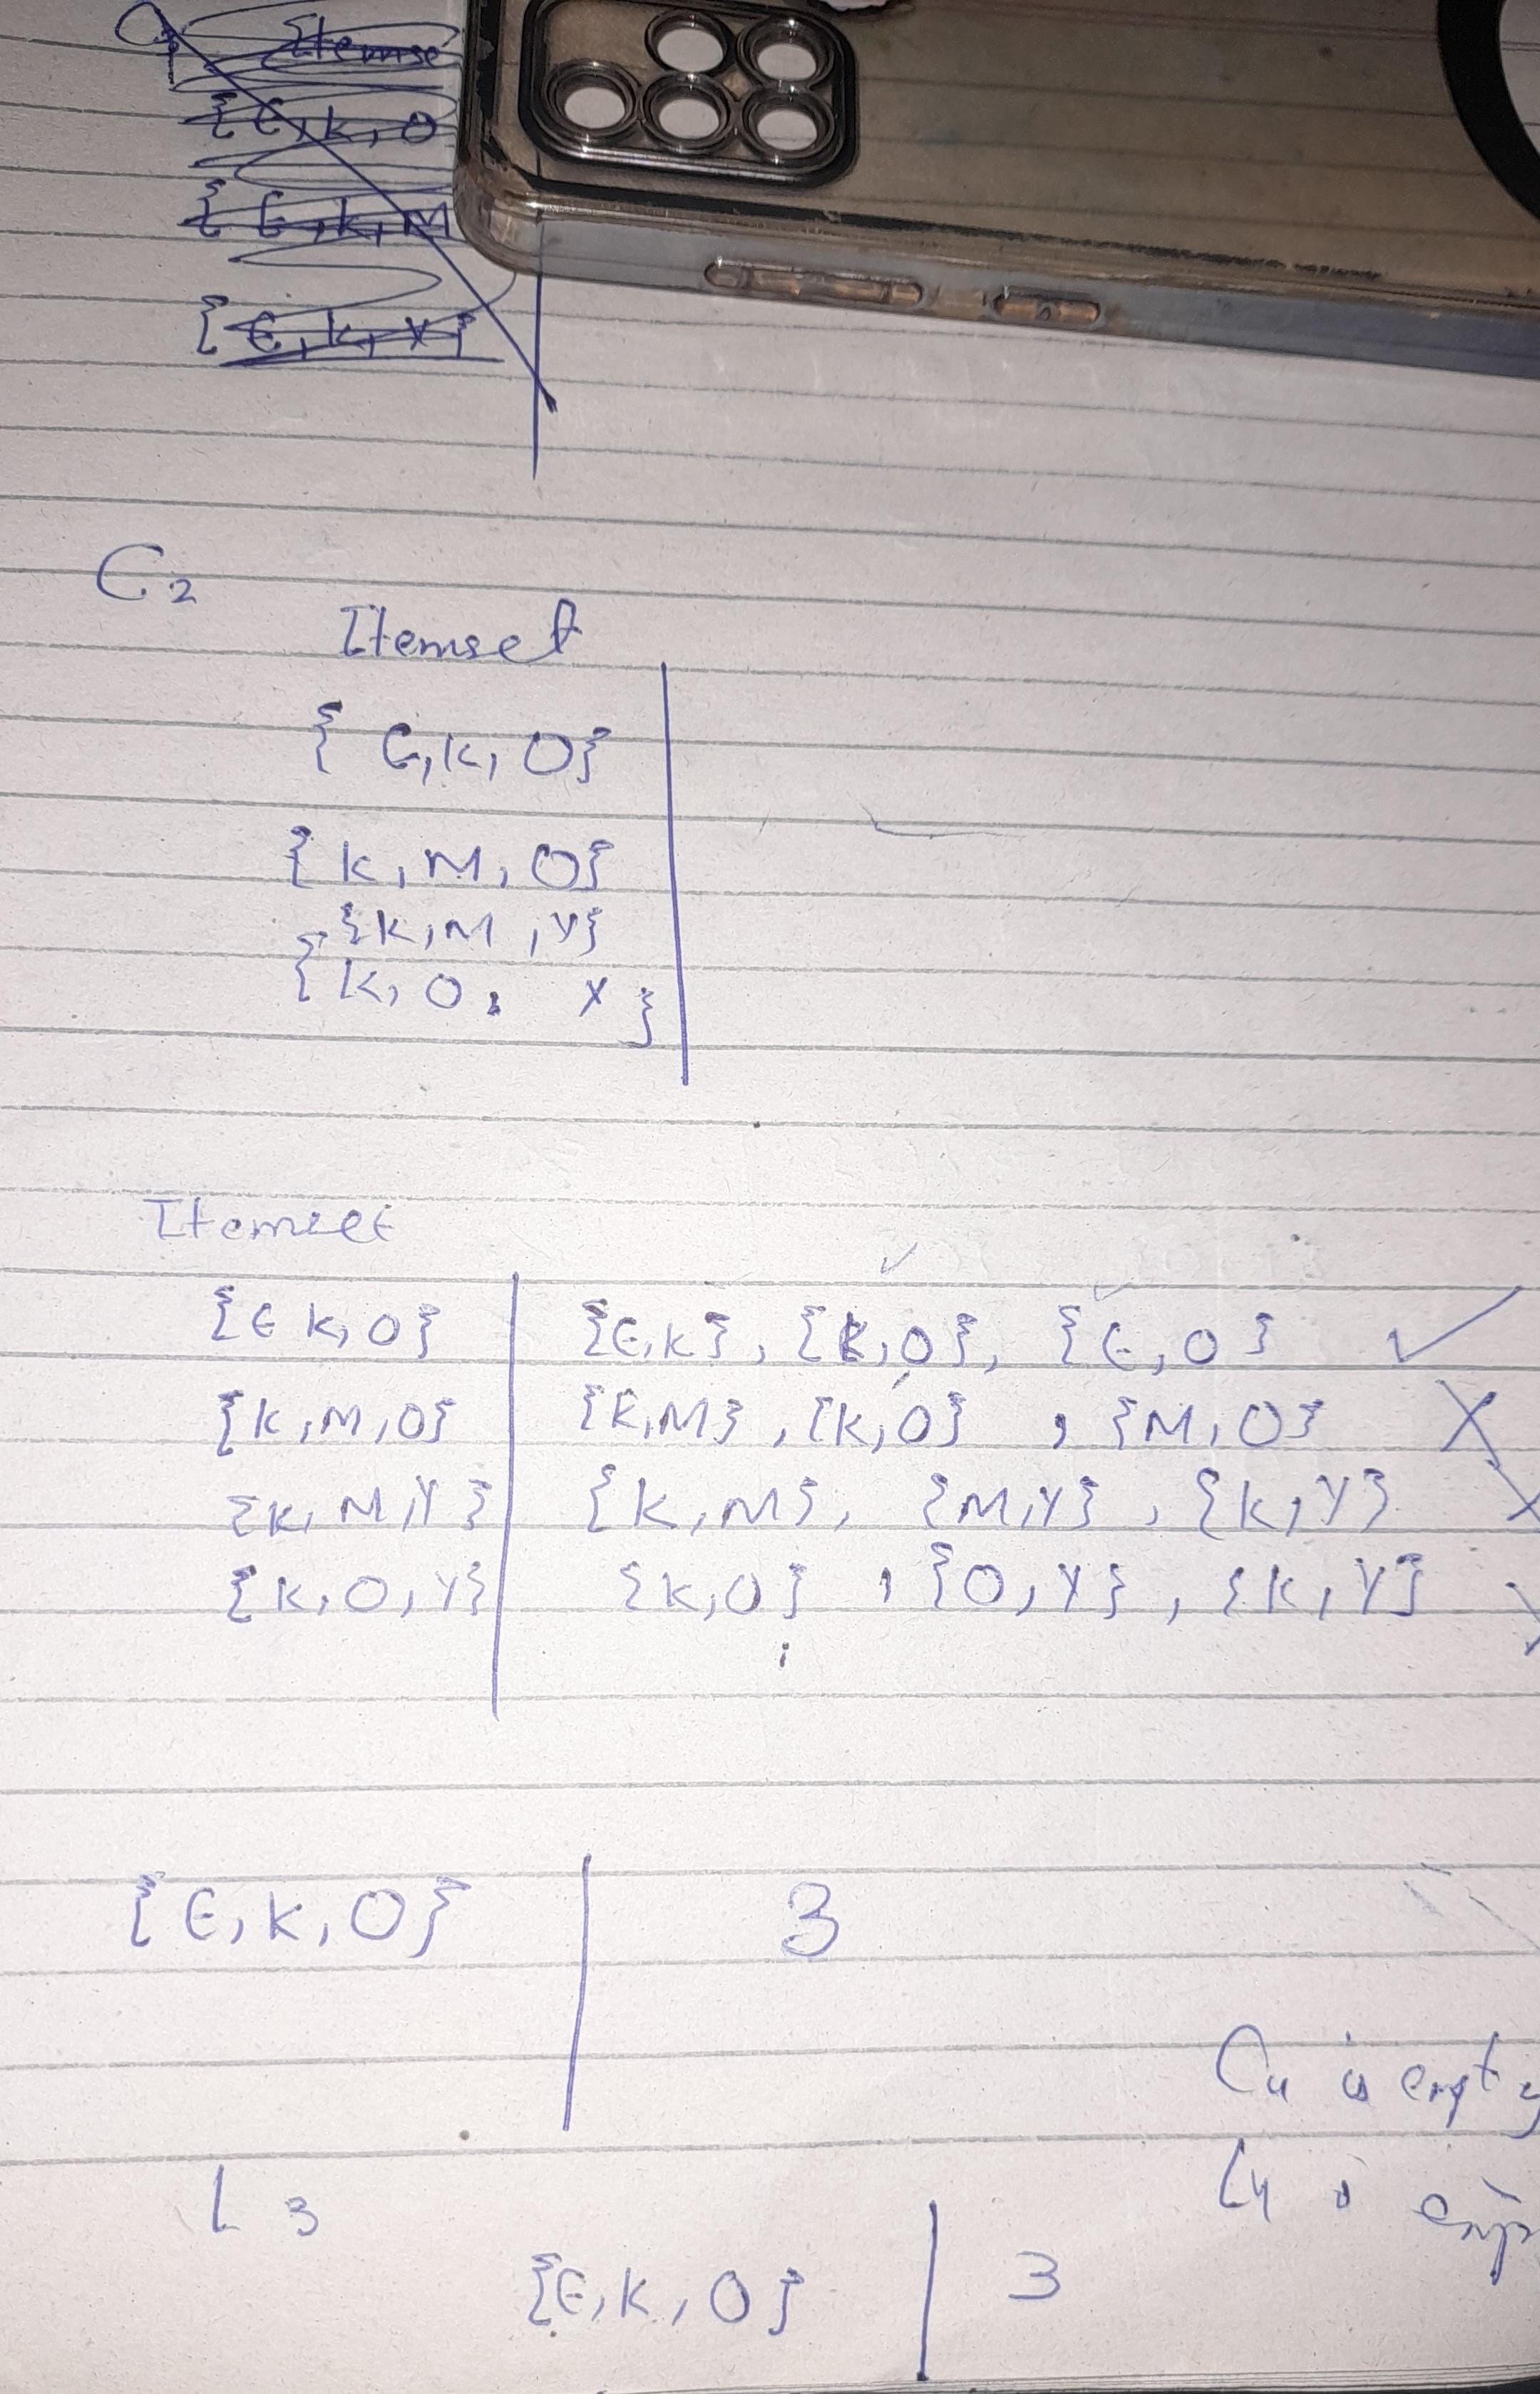 Itemse
{E, K, O
{E, K, M
{E, K, Y}
C2
Itemset
{E, K, O}
{K, M, O}
{K, M, Y}
{K, O, Y}
Itemset
{E K, O} {E, K}, {K, O}, {E, O} ✓
{K, M, O} {K, M}, {K, O}, {M, O} X
{K, M, Y} {K, M}, {M, Y}, {K, Y} X
{K, O, Y} {K, O}, {O, Y}, {K, Y} X
{E, K, O} 3
C4 is empty
L4 is emp
L3
{E, K, O} 3